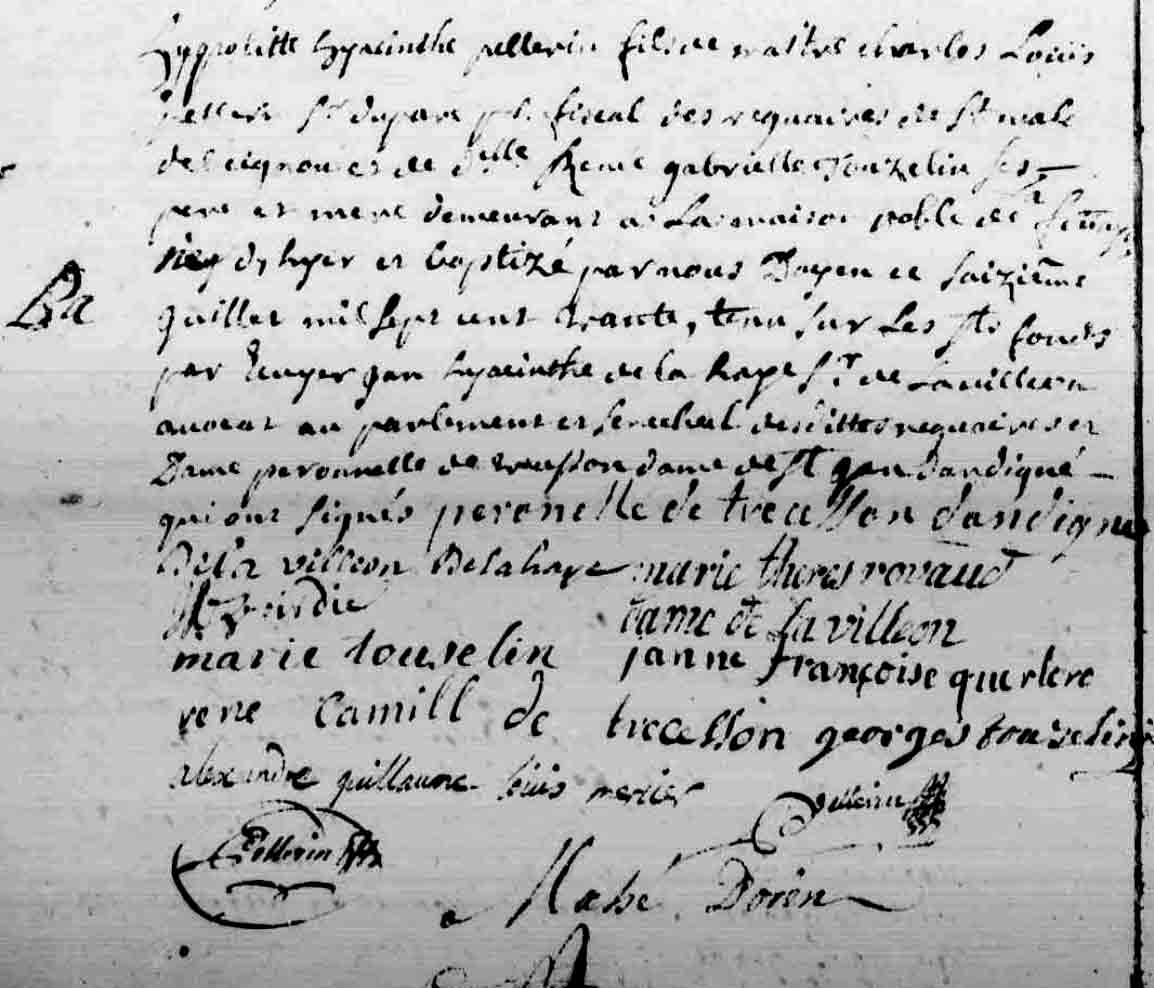 hyppolitte hyacinthe pellerin fils de maitre charles Louis
pellerin Sr. duparc pr. fiscal des regaires de St malo
de et de dlle Renée gabrielle Touzelin ses
pere et mere demeurant a La maison noble de
né d hyer et baptizé par nous Doyen ce saizieme
Juillet mil sept cent trante, tenu sur Les sts fonds
par Ecuyer jan hyacinthe de la haye Sr. de Lavilleon
avocat au parlement et senechal desdittes regaires et
Dame peronnelle de trecesson dame de St jan dandigné
qui ont signés peronelle de trecesson dandigné
De la villeon Delahaye marie theres rovaud
dame de la villeon
marie touselin janne françoise querlero
rene Camill de trecesson georges touzelin
alexandre guillaume louis mercier
pellerin
Pellerin
Mahé Doien
Ba